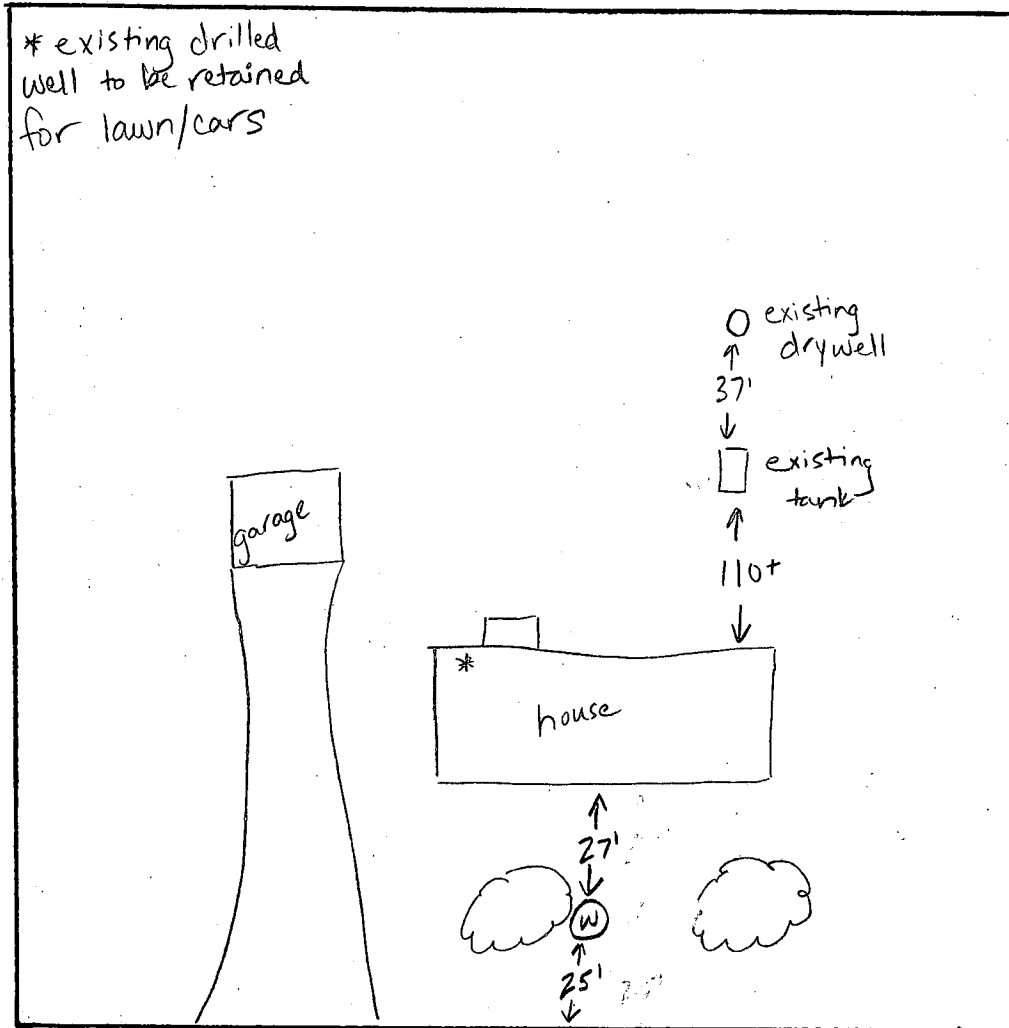 * existing drilled
well to be retained
for lawn/cars
existing
drywell
37'
existing
tank
garage
110+
*
house
27'
W
25'